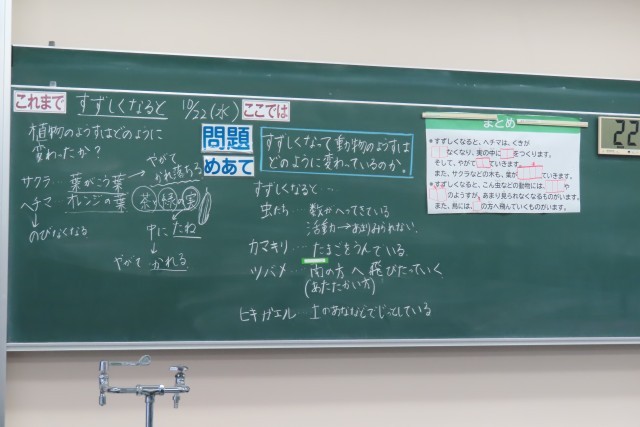 これまで
すずしくなると
10/22(水)
ここでは
植物のようすはどのように
変わったか？
サクラ…葉がこう葉
やがて
かれ落ちる
ヘチマ
オレンジの葉
茶
緑の実
のびなくなる
中にたね
やがて かれる
問題
めあて
すずしくなって動物のようすは
どのように変わっているのか。
すずしくなると…
虫たち…数がへってきている
活動力→あまりみられない。
カマキリ…たまごをうんでいる
ツバメ…南の方へ飛びたっていく
(あたたかい方)
ヒキガエル…土のあななどでじっとしている
まとめ
すずしくなると、ヘチマは、くきが
なくなり、実の中に をつくります。
そして、やがて ていきます。
また、サクラなどの木も、葉が ていきます。
すずしくなると、こん虫などの動物には、 や
のようすが、あまり見られなくなるものがいます。
また、鳥には、 の方へ飛んでいくものがいます。
22